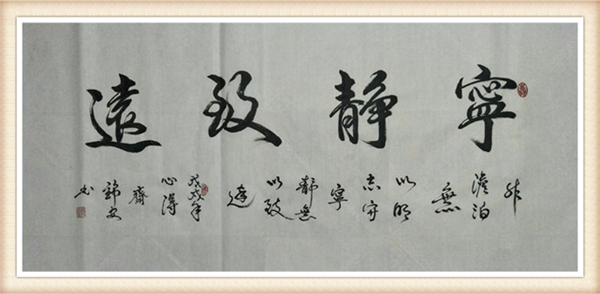 寧靜致遠
非
澹泊
無
以明
志非
寧
靜無
以致
遠
戊戌年
心得
齋
書